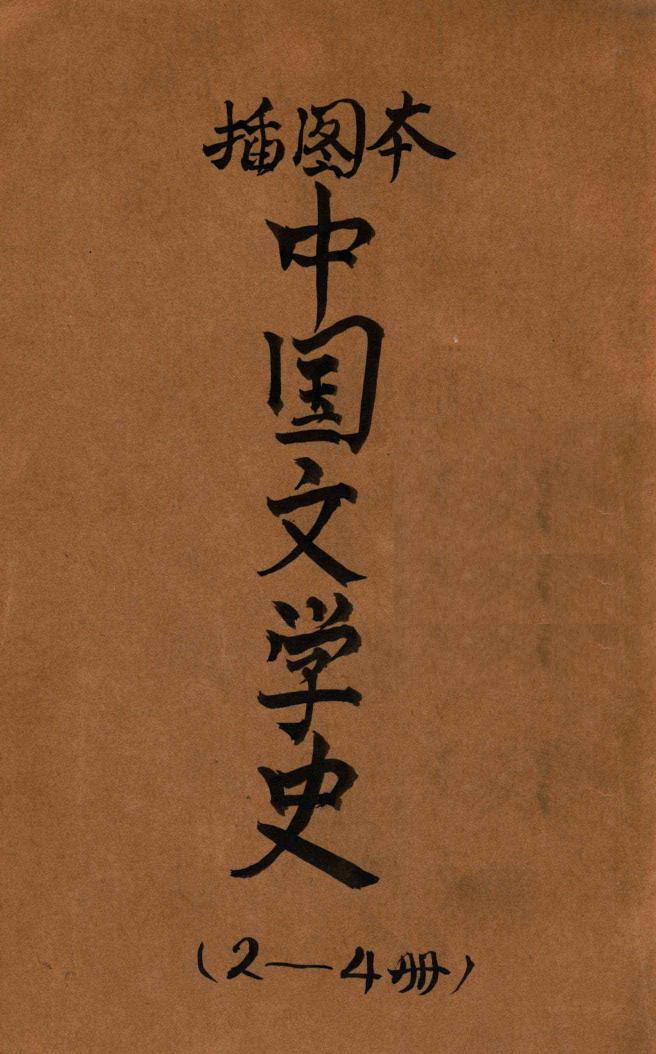 插图本
中国文学史
（2—4册）